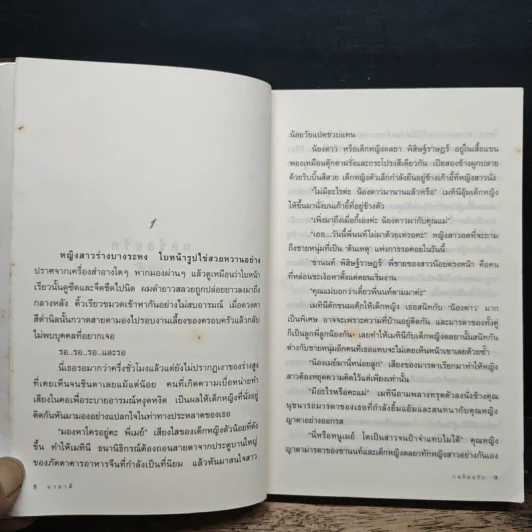 1
กลร้อยรัก
หญิงสาวร่างบางระหง ใบหน้ารูปไข่สวยหวานอย่าง
ปราศจากเครื่องสำอางใดๆ หากมองผ่านๆ แล้วดูเหมือนว่าใบหน้า
เรียวนั้นดูซีดและจืดชืดไปนิด ผมดำยาวสลวยถูกปล่อยยาวลงมาถึง
กลางหลัง คิ้วเรียวขมวดเข้าหากันอย่างไม่สบอารมณ์ เมื่อดวงตา
สีดำสนิทกวาดสายตามองไปรอบงานเลี้ยงของครอบครัวแล้วกลับ
ไม่พบบุคคลที่อยากเจอ
รอ..รอ..รอ..และรอ
นี่เธอรอมากว่าครึ่งชั่วโมงแล้วแต่ยังไม่ปรากฏเงาของร่างสูง
ที่เคยเห็นจนชินตาเลยแม้แต่น้อย คนที่เกิดความเบื่อหน่ายทำ
เสียงในคอเพื่อระบายอารมณ์หงุดหงิด เป็นผลให้เด็กหญิงที่นั่งอยู่
ติดกันหันมามองอย่างแปลกใจในท่าทางประหลาดของเธอ
"มองหาใครอยู่คะ พี่เมย์" เสียงใสของเด็กหญิงตัวน้อยที่ดัง
ขึ้น ทำให้เมทินี ธนานิธิกรณ์ต้องถอนสายตาจากประตูบานใหญ่
ของภัตตาคารอาหารจีนที่กำลังเป็นที่นิยม แล้วหันมาสนใจสาว
8 มาลาตี
น้อยวัยแปดขวบแทน
น้องดาว หรือเด็กหญิงดลยา พิสิษฐ์ราษฎร์ อยู่ในเสื้อแขน
พองเหมือนตุ๊กตาฝรั่งและกระโปรงสีเดียวกัน เปียสองข้างผูกปลาย
ด้วยริบบิ้นสีสวย เด็กหญิงตัวเล็กกำลังยืนอยู่ข้างเก้าอี้ที่หญิงสาวนั่ง
"ไม่มีอะไรค่ะ น้องดาวมานานแล้วหรือ" เมทินีอุ้มเด็กหญิง
ให้ขึ้นมานั่งบนเก้าอี้ที่อยู่ข้างตัว
"เพิ่งมาถึงเมื่อกี้เองค่ะ น้องดาวมากับคุณแม่"
"เอ่อ...วันนี้พี่นนท์ไม่มาด้วยเหรอคะ" หญิงสาวอดที่จะถาม
ถึงชายหนุ่มที่เป็น 'ต้นเหตุ' แห่งการรอคอยในวันนี้
ชานนท์ พิสิษฐ์ราษฎร์ พี่ชายของหนูน้อยตรงหน้า คือคนที่
ที่หล่อนจะเจือหาตั้งตอนเริ่มงาน
"คุณแม่บอกว่าเดี๋ยวพี่นนท์ตามมาค่ะ"
เมทินีตักขนมเค้กให้เด็กหญิง เธอสนิทกับ 'น้องดาว' มาก
เป็นพิเศษ อาจจะเพราะความที่บ้านอยู่ติดกัน และมารดาของทั้งคู่
ก็เป็นลูกพี่ลูกน้องกัน เลยทำให้เมทินีกับเด็กหญิงดลยานั้นสนิทกัน
ต่างกับชายหนุ่มอีกคนที่เธอแทบจะไม่เคยเห็นหน้าเขาเลยด้วยซ้ำ
"น้องเมย์มานี่หน่อยลูก" เสียงของมารดาเรียกมาทำให้หญิง
สาวต้องหยุดความคิดไว้แต่เพียงเท่านั้น
"มีอะไรหรือคะแม่" เมทินีถามพลางทรุดตัวลงนั่งข้างคุณ
นุชนารถมารดาของเธอที่กำลังยิ้มแย้มและสนทนากับคุณหญิง
ญาดาอย่างออกรส
"นี่หรือหนูเมย์ โตเป็นสาวจนป้าจำแทบไม่ได้" คุณหญิง
ญาดามารดาของชานนท์และเด็กหญิงดลยาทักหญิงสาวอย่างกันเอง
กลร้อยรัก 9